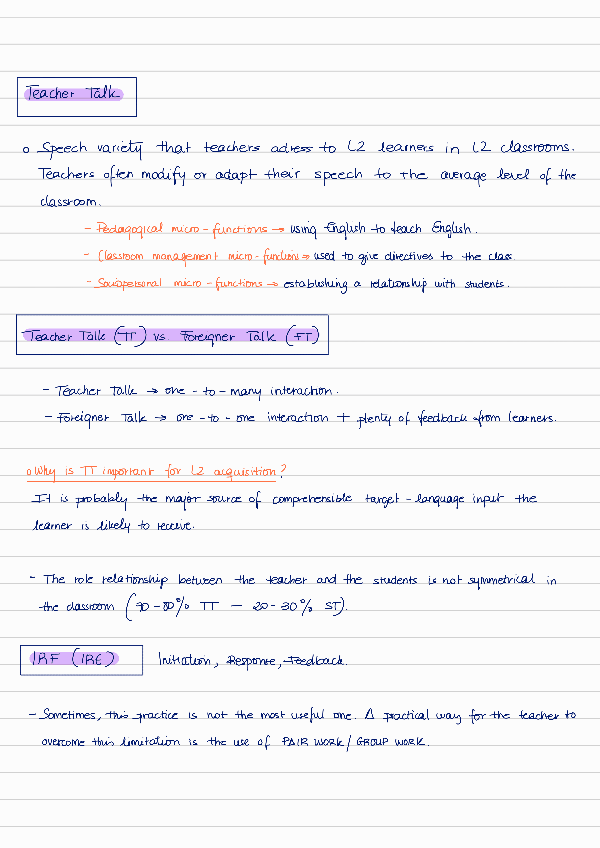 Teacher Talk
o Speech variety that teachers adress to L2 learners in L2 classrooms.
Teachers often modify or adapt their speech to the average level of the
classroom.
- Pedagogical micro-functions → using English to teach English.
- Classroom management micro-functions → used to give directives to the class.
- Sociopersonal micro-functions → establishing a relationship with students.
Teacher Talk (TT) vs. Foreigner Talk (FT)
- Teacher Talk → one-to-many interaction.
- Foreigner Talk → one-to-one interaction + plenty of feedback from learners.
o Why is TT important for L2 acquisition?
It is probably the major source of comprehensible target-language input the
learner is likely to receive.
- The role relationship between the teacher and the students is not symmetrical in
the classroom (70-80% TT - 20-30% ST).
IRF (IRE) Initiation, Response, Feedback.
- Sometimes, this practice is not the most useful one. A practical way for the teacher to
overcome this limitation is the use of PAIR WORK/GROUP WORK.